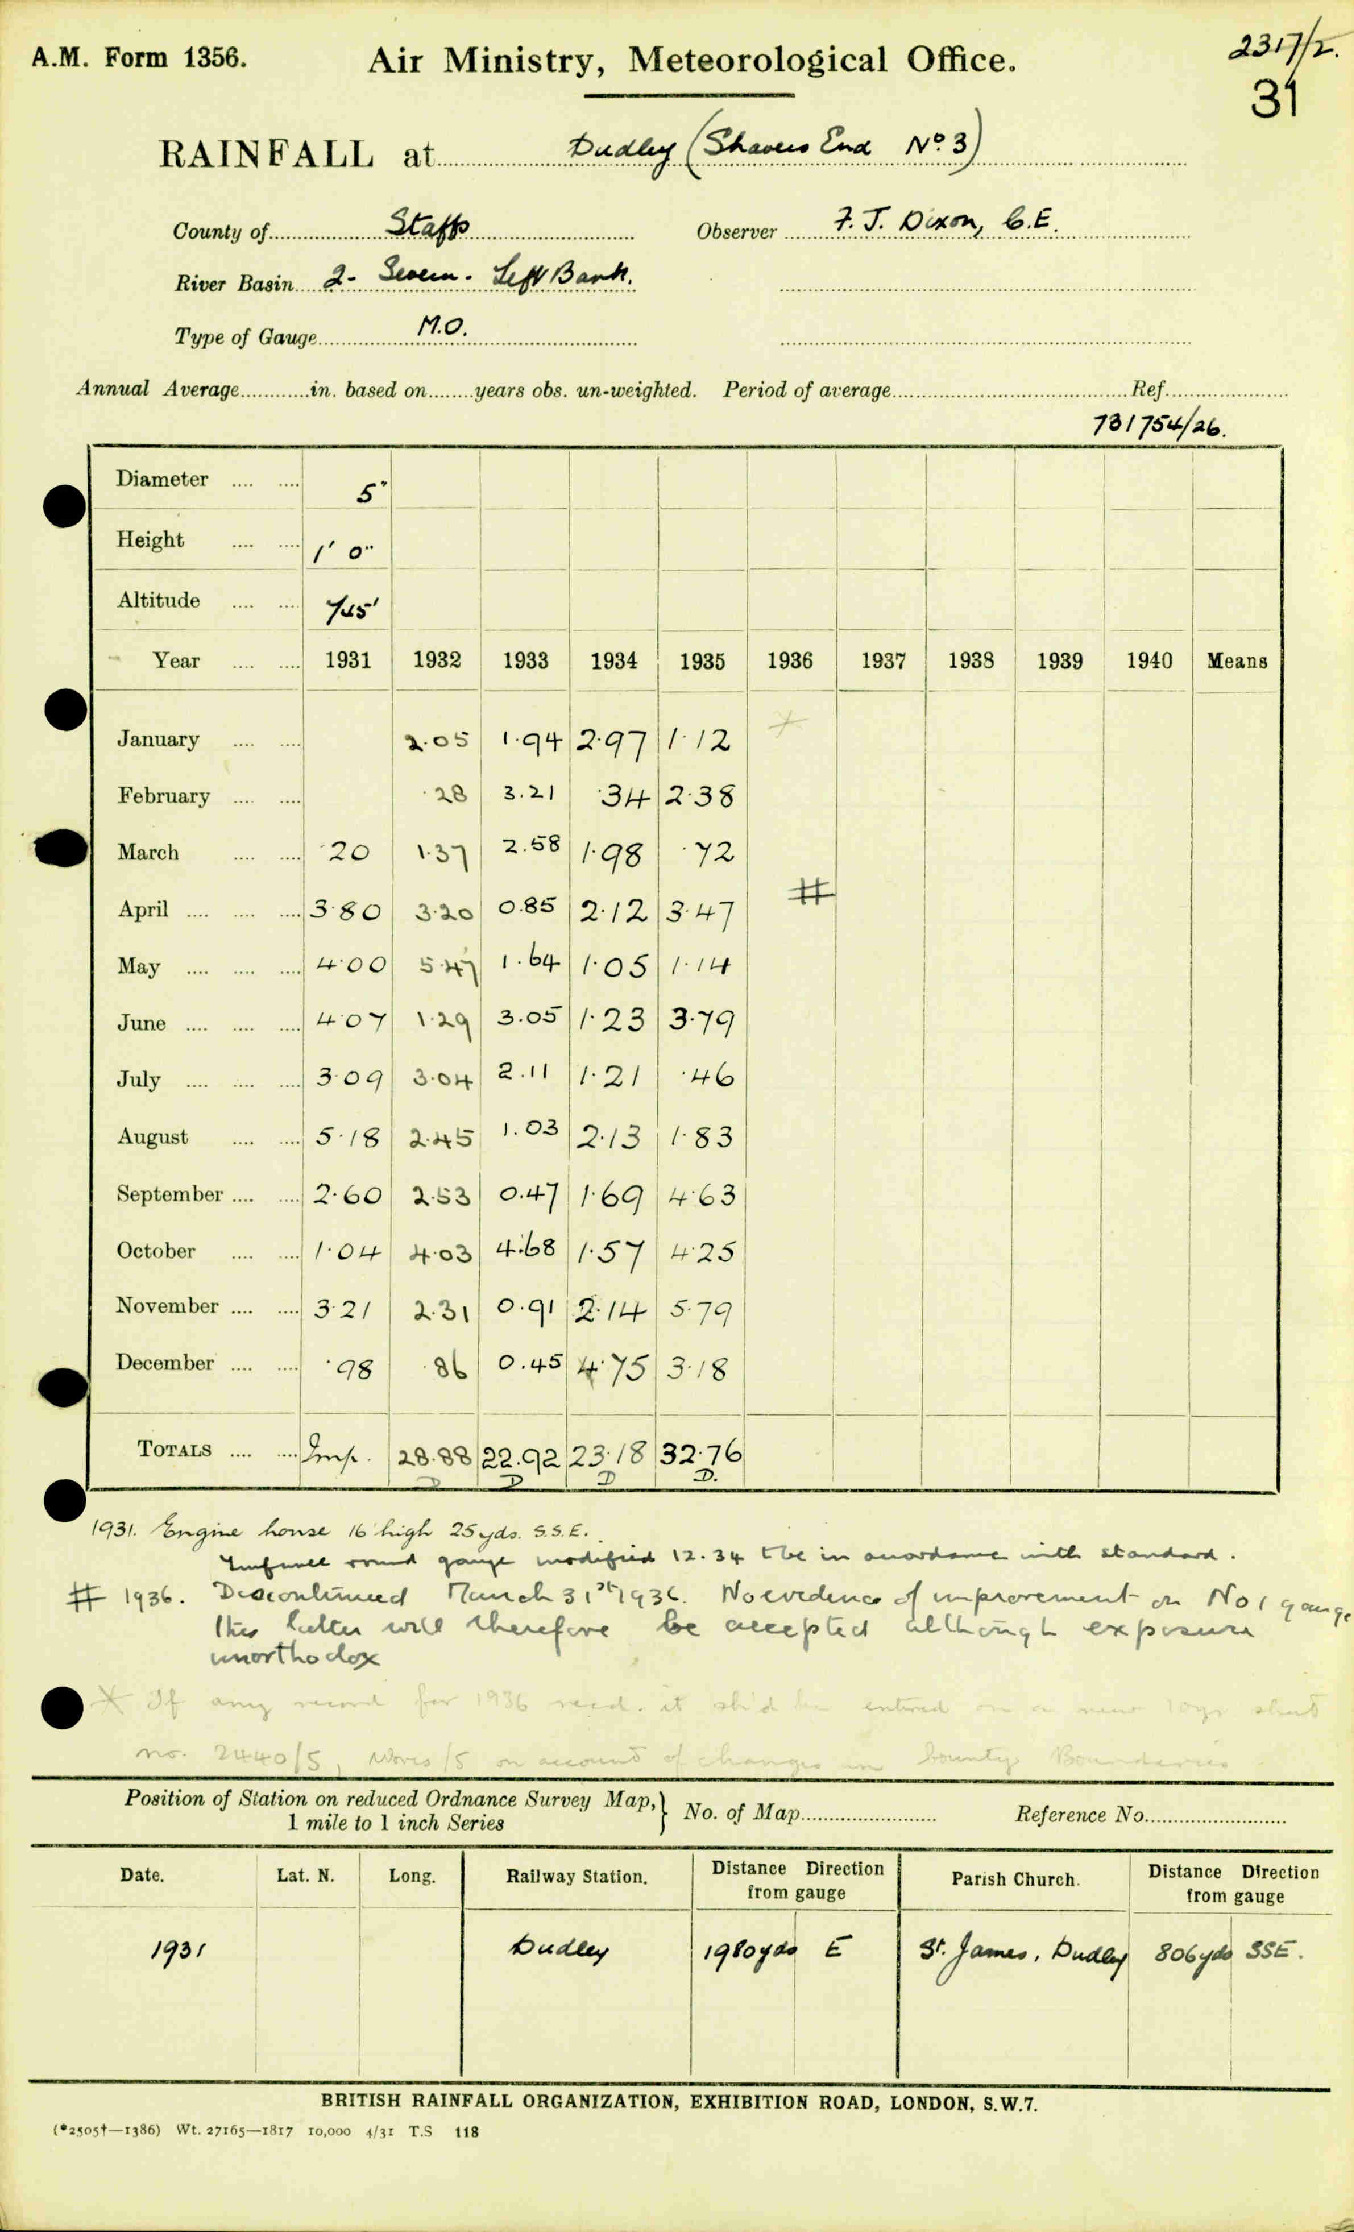 A.M. Form 1356. Air Ministry, Meteorological Office. 2317/2.
31
RAINFALL at Dudley (Shavers End No 3)
County of Staffs Observer F. J. Dixon, C.E.
River Basin 2- Severn. Left Bank.
Type of Gauge M.O.
Annual Average in. based on years obs. un-weighted. Period of average Ref.
731754/26.
Diameter 5"
Height 1' 0"
Altitude 745'
Year 1931 1932 1933 1934 1935 1936 1937 1938 1939 1940 Means
January 2.05 1.94 2.97 1.12
February .28 3.21 .34 2.38
March .20 1.37 2.58 1.98 .72
April 3.80 3.20 0.85 2.12 3.47 #
May 4.00 5.47 1.64 1.05 1.14
June 4.07 1.29 3.05 1.23 3.79
July 3.09 3.04 2.11 1.21 .46
August 5.18 2.45 1.03 2.13 1.83
September 2.60 2.53 0.47 1.69 4.63
October 1.04 4.03 4.68 1.57 4.25
November 3.21 2.31 0.91 2.14 5.79
December .98 .86 0.45 4.75 3.18
TOTALS Imp. 28.88 22.92 23.18 32.76
D D D D.
1931. Engine house 16' high 25 yds. S.S.E.
round gauge modified 12.34 to be in accordance with standard.
# 1936. Discontinued March 31st 1936. No evidence of improvement on No 1 gauge
this latter will therefore be accepted although exposure
unorthodox
* If any record for 1936 recd. it sh'd be entered on a new 10yr sheet
no. 2440/5, Worcs/5 on account of changes in County Boundaries
Position of Station on reduced Ordnance Survey Map, } No. of Map Reference No.
1 mile to 1 inch Series
Date. Lat. N. Long. Railway Station. Distance Direction from gauge Parish Church. Distance Direction from gauge
1931 Dudley 1980 yds E St. James, Dudley 806 yds SSE.
BRITISH RAINFALL ORGANIZATION, EXHIBITION ROAD, LONDON, S.W.7.
(*2505†—1386) Wt. 27165—1817 10,000 4/31 T.S 118